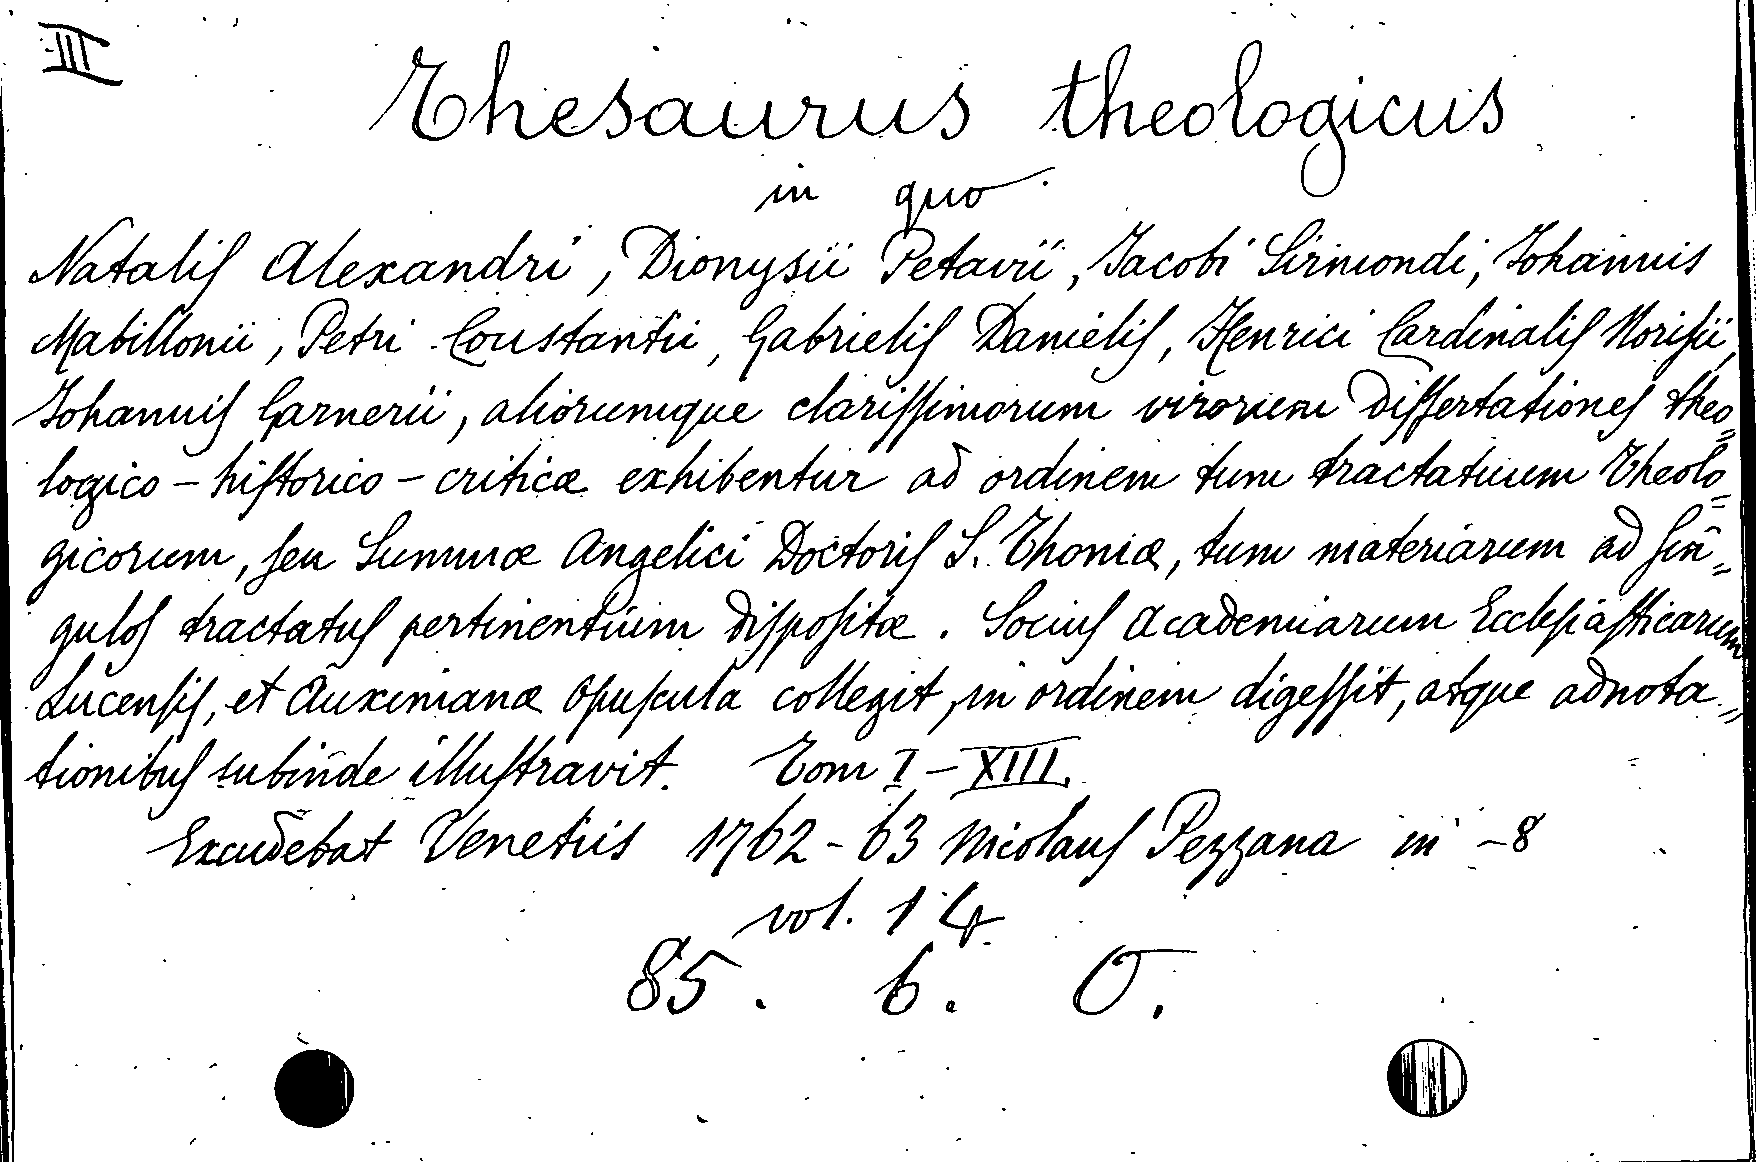 III
Thesaurus theologicus
in quo
Natalis Alexandri, Dionysii Petavii, Jacobi Sirmondi, Johannis
Mabillonii, Petri Coustantii, Gabrielis Danielis, Henrici Cardinalis Norisii,
Johannis Garnerii, aliorumque clarissimorum virorum Dissertationes theo=
logico-historico-criticæ exhibentur ad ordinem tum tractatuum Theolo=
gicorum, seu Summæ Angelici Doctoris S. Thomæ, tum materiarum ad sin=
gulos tractatus pertinentium dispositæ. Socius Academiarum Ecclesiasticarum
Lucensis, et Auximanæ Opuscula collegit, in ordinem digessit, atque adnota=
tionibus subinde illustravit. Tom I-XIII.
Excudebat Venetiis 1762-63 Nicolaus Pezzana in -8
vol. 14.
85. b. O.